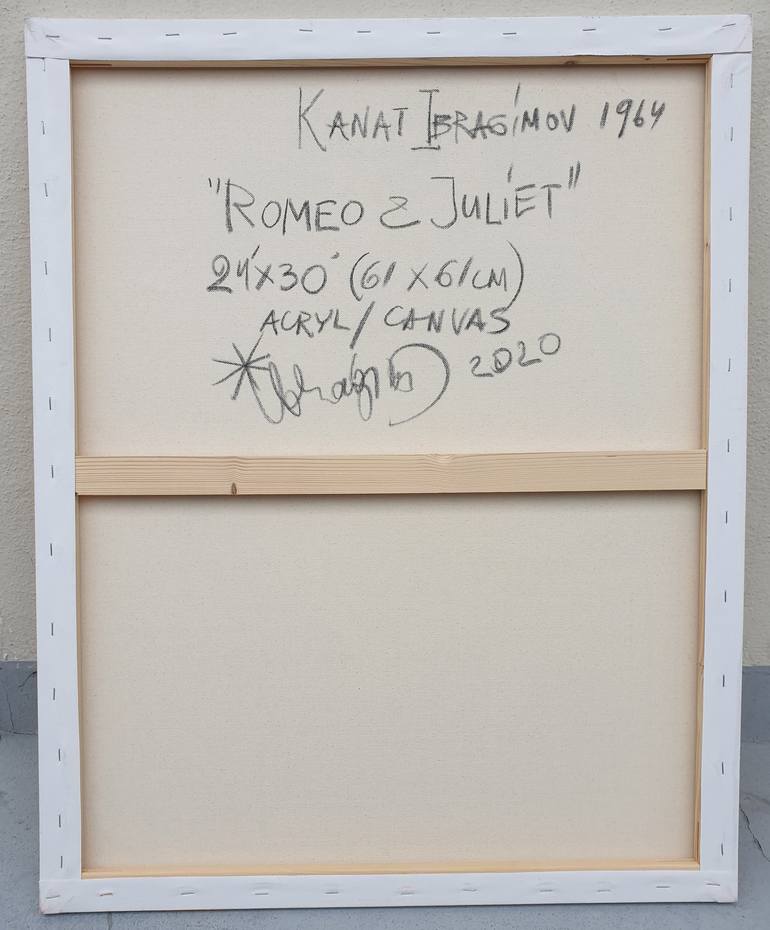 KANAT IBRAGIMOV 1964
"ROMEO & JULIET"
24"X30" (61X61CM)
ACRYL/CANVAS
2020